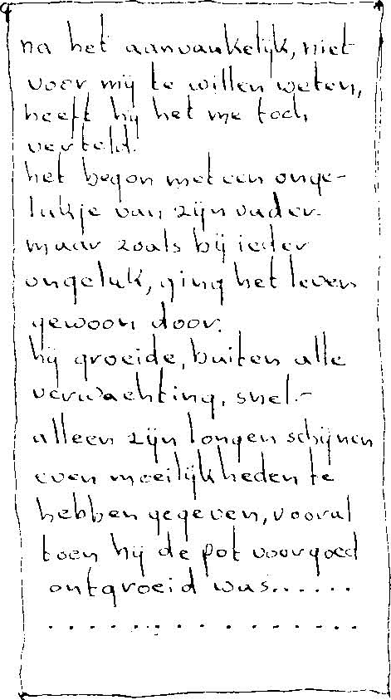 na het aanvankelijk, niet
voor mij te willen weten,
heeft hij het me toch
verteld.
het begon met een onge-
lukje van zijn vader.
maar zoals bij ieder
ongeluk, ging het leven
gewoon door.
hij groeide, buiten alle
verwachting, snel.-
alleen zijn longen schijnen
even moeilijkheden te
hebben gegeven, vooral
toen hij de pot voorgoed
ontgroeid was......
. . . . . . . . . . . . . .